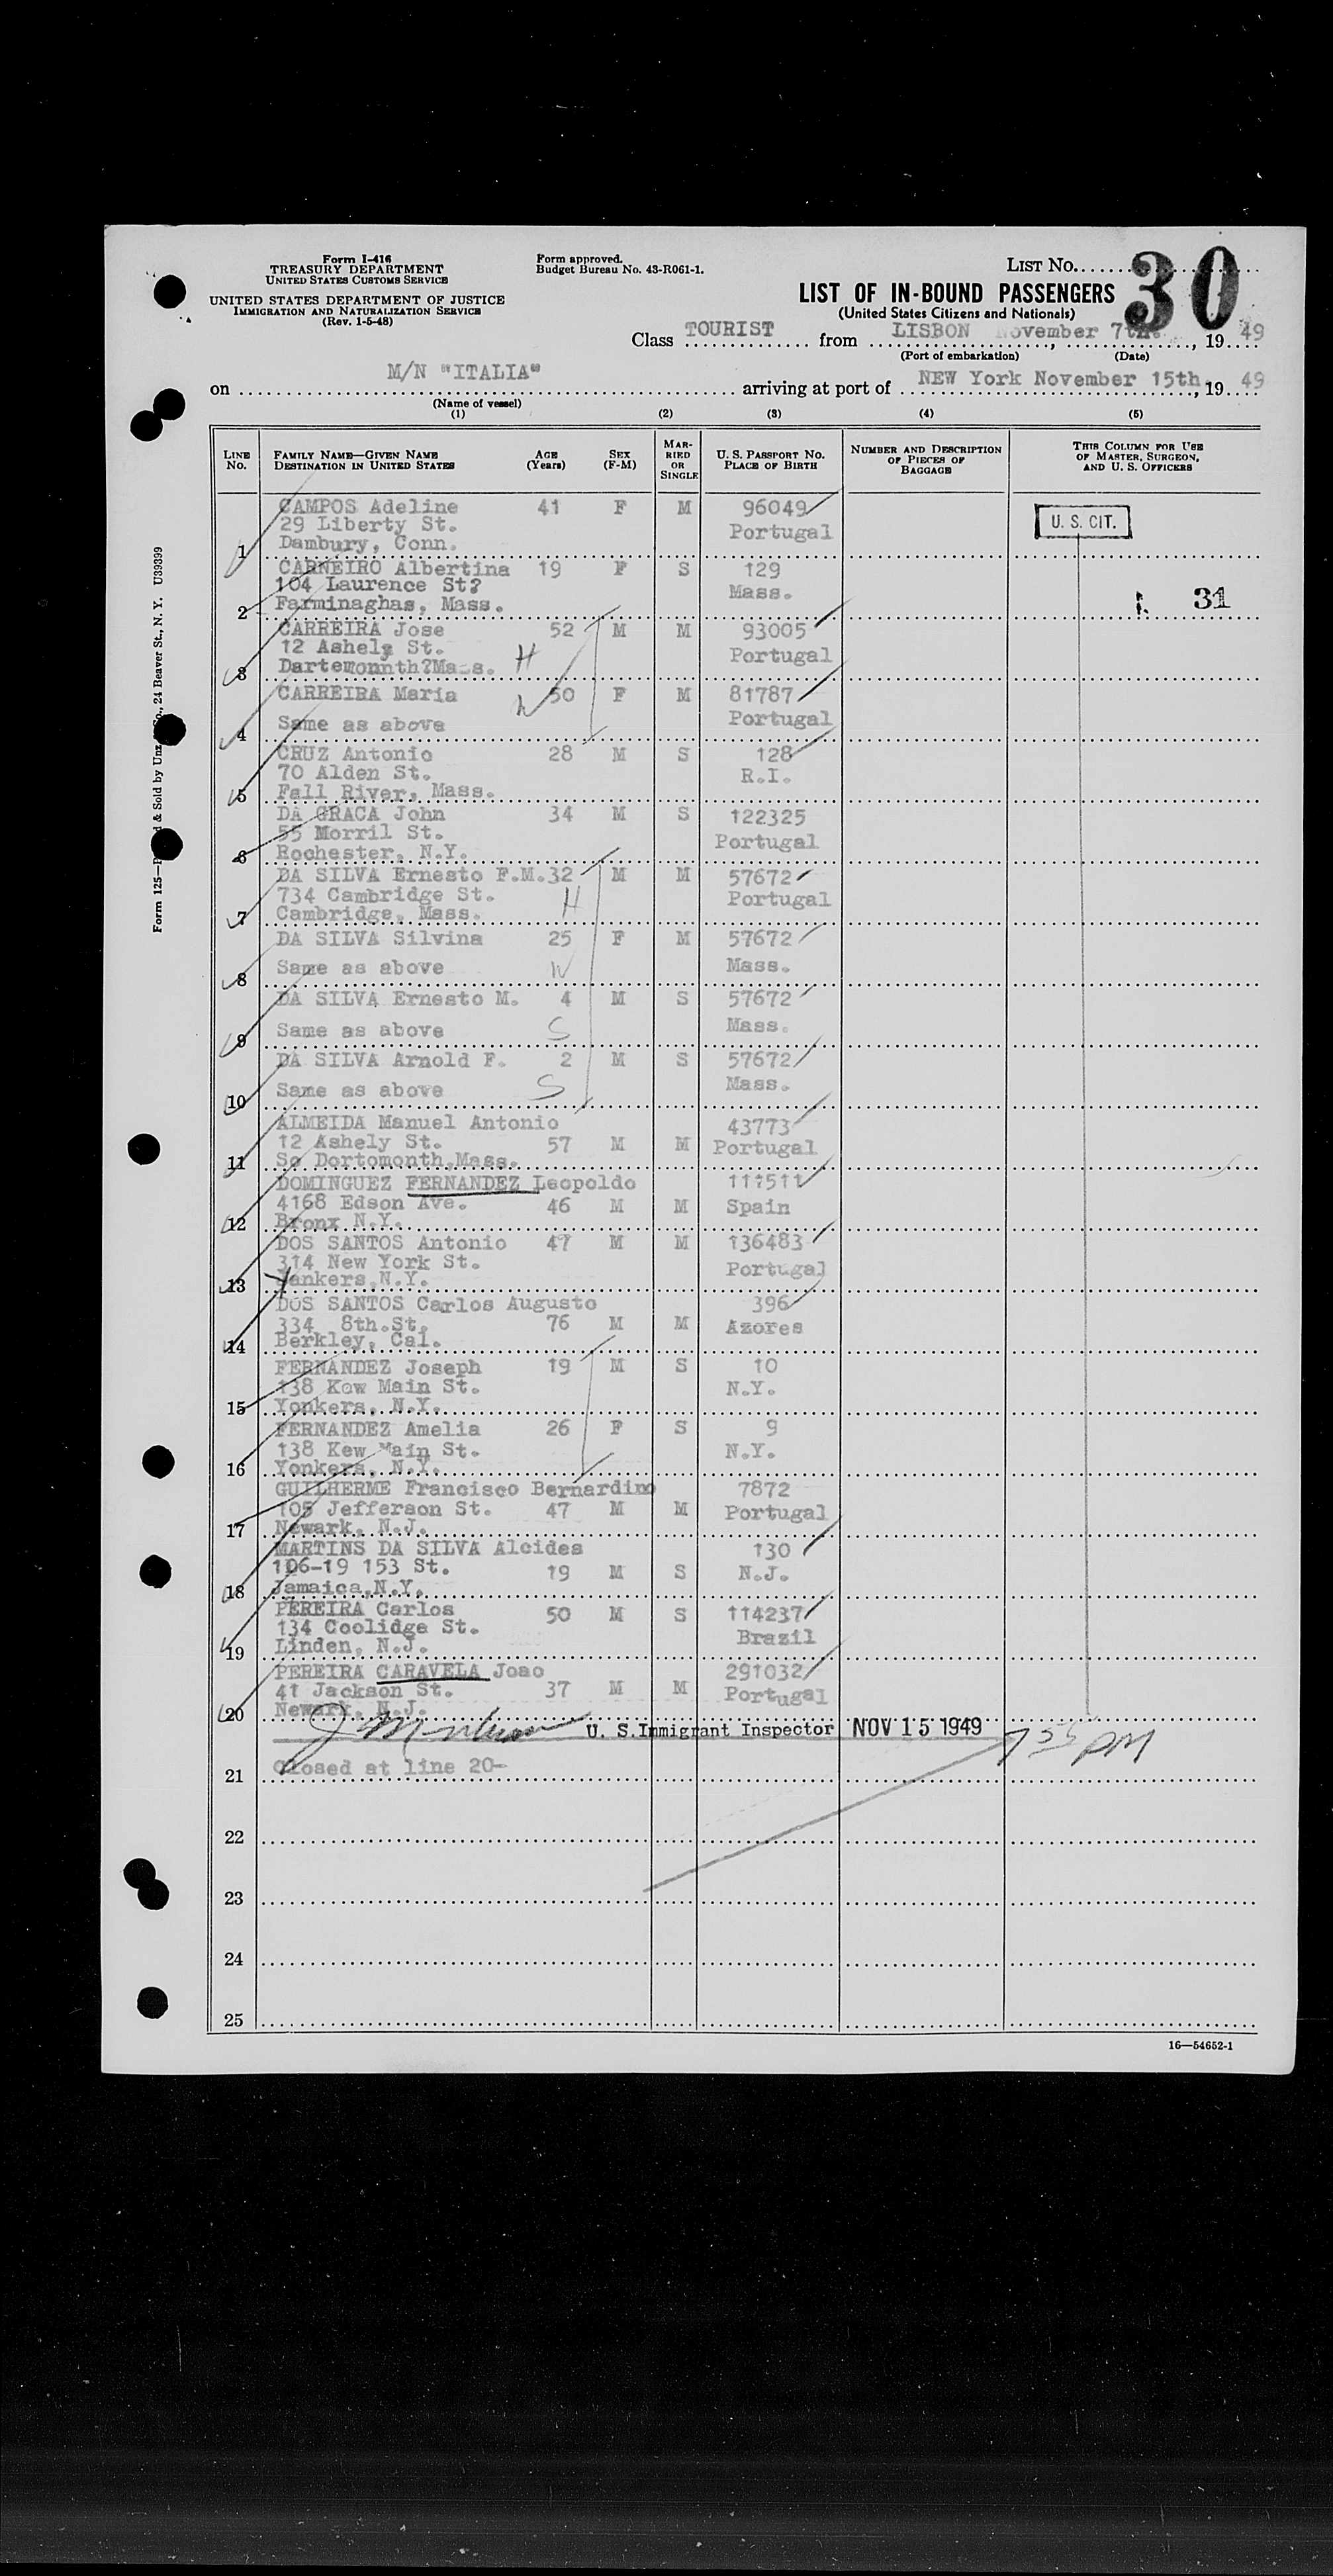 Form I-416
TREASURY DEPARTMENT
UNITED STATES CUSTOMS SERVICE
UNITED STATES DEPARTMENT OF JUSTICE
IMMIGRATION AND NATURALIZATION SERVICE
(Rev. 1-5-48)
Form approved.
Budget Bureau No. 43-R061-1.
LIST NO. 30
LIST OF IN-BOUND PASSENGERS
(United States Citizens and Nationals)
Class TOURIST from LISBON November 7th. , 19 49
(Port of embarkation) (Date)
on M/N "ITALIA" arriving at port of NEW York November 15th , 19 49
(Name of vessel)
(1) (2) (3) (4) (5)
LINE No. FAMILY NAME—GIVEN NAME DESTINATION IN UNITED STATES AGE (Years) SEX (F-M) MARRIED OR SINGLE U. S. PASSPORT NO. PLACE OF BIRTH NUMBER AND DESCRIPTION OF PIECES OF BAGGAGE THIS COLUMN FOR USE OF MASTER, SURGEON, AND U. S. OFFICERS
CAMPOS Adeline 41 F M 96049
29 Liberty St. Portugal U. S. CIT.
1 Dambury, Conn.
CARNEIRO Albertina 19 F S 129
104 Laurence St? Mass.
2 Farminaghas, Mass. 31
CARREIRA Jose 52 M M 93005
12 Ashely St. H Portugal
3 Dartemonnth?Mass.
CARREIRA Maria W 50 F M 81787
4 Same as above Portugal
CRUZ Antonio 28 M S 128
70 Alden St. R.I.
5 Fall River, Mass.
DA GRACA John 34 M S 122325
55 Morril St. Portugal
6 Rochester, N.Y.
DA SILVA Ernesto F.M. 32 M M 57672
734 Cambridge St. H Portugal
7 Cambridge, Mass.
DA SILVA Silvina 25 F M 57672
8 Same as above W Mass.
DA SILVA Ernesto M. 4 M S 57672
9 Same as above S Mass.
DA SILVA Arnold F. 2 M S 57672
10 Same as above S Mass.
ALMEIDA Manuel Antonio 43773
12 Ashely St. 57 M M Portugal
11 So Dortomonth,Mass.
DOMINGUEZ FERNANDEZ Leopoldo 111511
4168 Edson Ave. 46 M M Spain
12 Bronx N.Y.
DOS SANTOS Antonio 47 M M 136483
314 New York St. Portugal
13 Yankers,N.Y.
DOS SANTOS Carlos Augusto 396
334 8th.St. 76 M M Azores
14 Berkley, Cal.
FERNANDEZ Joseph 19 M S 10
138 Kow Main St. N.Y.
15 Yonkers, N.Y.
FERNANDEZ Amelia 26 F S 9
138 Kew Main St. N.Y.
16 Yonkers, N.Y.
GUILHERME Francisco Bernardino 7872
105 Jefferson St. 47 M M Portugal
17 Newark, N.J.
MARTINS DA SILVA Alcides 130
106-19 153 St. 19 M S N.J.
18 Jamaica,N.Y.
PEREIRA Carlos 50 M S 114237
134 Coolidge St. Brazil
19 Linden, N.J.
PEREIRA CARAVELA Joao 291032
41 Jackson St. 37 M M Portugal
20 Newark, N.J.
U. S. Immigrant Inspector NOV 15 1949 7 55 PM
21 Closed at line 20-
22
23
24
25
16—54652-1
& Sold by Co., 24 Beaver St., N. Y. U39399
Form 125